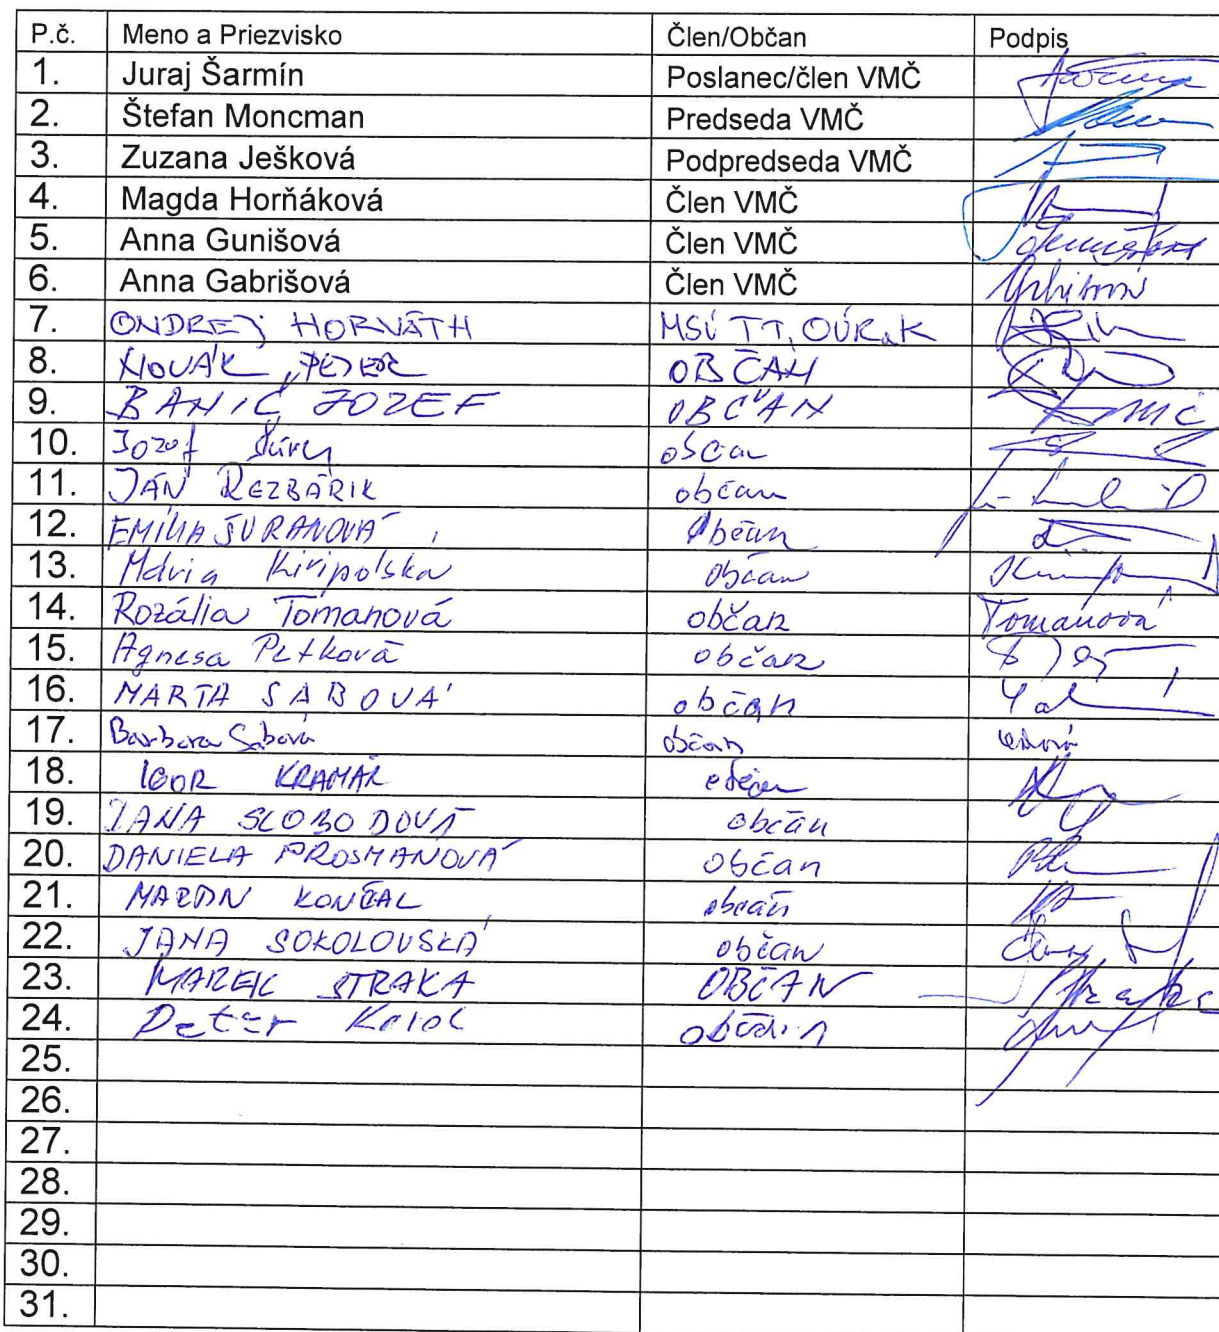 P.č. Meno a Priezvisko Člen/Občan Podpis
1. Juraj Šarmín Poslanec/člen VMČ
2. Štefan Moncman Predseda VMČ
3. Zuzana Ješková Podpredseda VMČ
4. Magda Horňáková Člen VMČ
5. Anna Gunišová Člen VMČ
6. Anna Gabrišová Člen VMČ
7. ONDREJ HORVÁTH MSÚ TT, OÚRaK
8. NOVÁK, PETER OBČAN
9. BANIČ JOZEF OBČAN
10. Jozef občan
11. JÁN REZBÁRIK občan
12. EMÍLIA JURANOVÁ občan
13. Mária Kiripolská občan
14. Rozália Tomanová občan Tomanová
15. Agnesa Petková občan
16. MARTA SABOVÁ občan
17. Barbora Sabová občan
18. IGOR KRAMÁR občan
19. JANA SLOBODOVÁ občan
20. DANIELA PROSMANOVÁ občan
21. MARTIN KONČAL občan
22. JANA SOKOLOVSKÁ občan
23. MAREK STRAKA OBČAN Straka
24. Peter Karol občan
25.
26.
27.
28.
29.
30.
31.